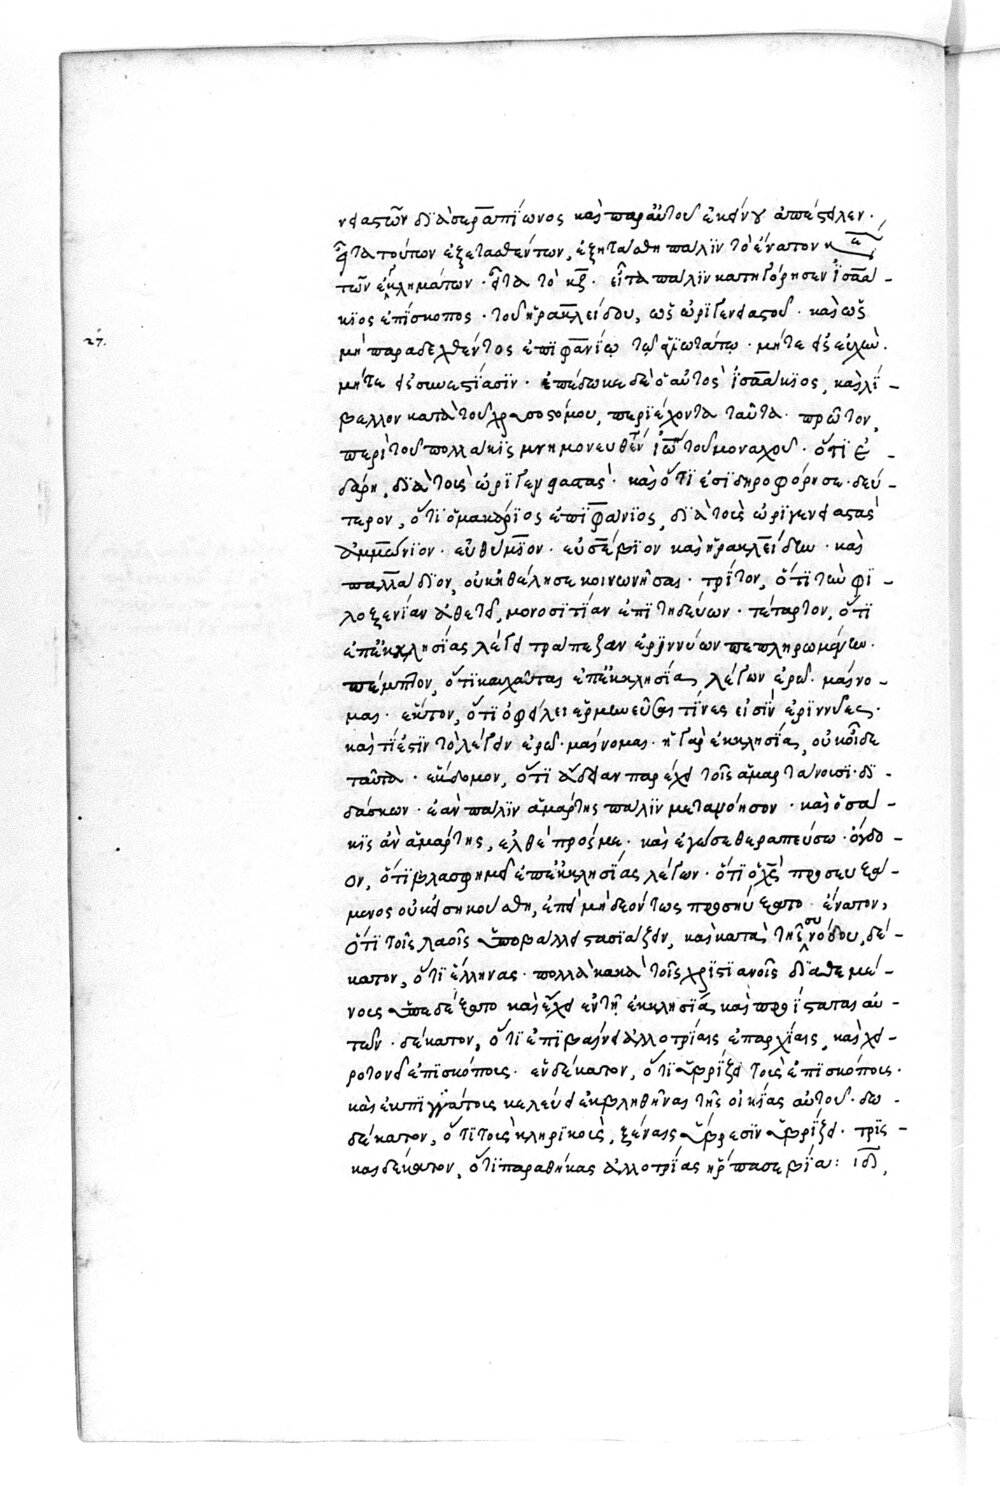 νειστῶν διὰ σεραπίωνος καὶ παρ αὐτοῦ ἐκείνου ἀπέστειλεν ·
εἶτα τούτων ἐξετασθέντων, ἐξητάσθη πάλιν τὸ ἔνατον κε
τῶν ἐγκλημάτων · εἶτα τὸ κζ · εἶτα πάλιν κατηγόρησεν ἰσαά-
κιος ἐπίσκοπος · τοῦ ἡρακλείδου, ὡς ὠριγενειαστοῦ · καὶ ὡς
27.
μὴ παραδεχθέντος ἐπιφανίῳ τῷ ἁγιωτάτῳ · μήτε εἰς εὐχὴν ·
μήτε εἰς συνεστίασιν · ἐπέδωκε δὲ ὁ αὐτὸς ἰσαάκιος, καὶ λί-
βελλον κατὰ τοῦ χρυσοστόμου, περιέχοντα ταῦτα · πρῶτον,
περὶ τοῦ πολλακις μνημονευθέντος ἰωάννου τοῦ μοναχοῦ · ὅτι ἐ-
δάρη, διὰ τοὺς ὠριγενειαστάς · καὶ ὅτι ἐσιδηροφόρησε · δεύ-
τερον, ὅτι ὁ μακάριος ἐπιφάνιος, διὰ τοὺς ὠριγενειαστὰς
ἀμμώνιον · εὐθύμιον · εὐσέβιον καὶ ἡρακλείδην · καὶ
παλλάδιον, οὐκ ἠθέλησε κοινωνῆσαι · τρίτον, ὅτι τὴν φι-
λοξενίαν ἀθετεῖ, μονοσιτίαν ἐπιτηδεύων · τέταρτον, ὅτι
ἐπ ἐκκλησίας λέγει τράπεζαν ἐριννύων πεπληρωμένην ·
πέμπτον, ὅτι καυχᾶται ἐπ ἐκκλησίας, λέγων ἐρῶ · μαίνο-
μαι · ἕκτον, ὅτι ὀφείλει ἑρμηνεῦσαι τίνες εἰσὶν ἐριννύες ·
καὶ τί ἐστιν τὸ λέγειν ἐρῶ · μαίνομαι · ἡ γὰρ ἐκκλησία, οὐκ οἶδε
ταῦτα · ἕβδομον, ὅτι ἄδειαν παρέχει τοῖς ἁμαρτάνουσι · δι-
δάσκων · ἐὰν πάλιν ἁμάρτῃς πάλιν μετανόησον · καὶ ὁσά-
κις ἂν ἁμάρτῃς, ἐλθὲ πρός με · καὶ ἐγώ σε θεραπεύσω · ὄγδο-
ον, ὅτι βλασφημεῖ ἐπ ἐκκλησίας λέγων · ὅτι ὁ χς προσευξά-
μενος οὐκ εἰσηκούσθη, ἐπεὶ μὴ δεόντως προσηύξατο · ἔνατον,
ὅτι τοῖς λαοῖς ὑποβάλλει στασιάζειν, καὶ κατὰ τῆς συνόδου, δέ-
κατον, ὅτι ἕλληνας · πολλὰ κακὰ τοῖς χριστιανοῖς διαθεμέ-
νους ὑπεδέξατο καὶ ἔχει ἐν τῇ ἐκκλησίᾳ καὶ προΐσταται αὐ-
τῶν · δέκατον, ὅτι ἐπιβαίνει ἀλλοτρίαις ἐπαρχίαις, καὶ χει-
ροτονεῖ ἐπισκόπους · ἑνδέκατον, ὅτι ὑβρίζει τοὺς ἐπισκόπους ·
καὶ ἐκπιγγάτους κελεύει ἐκβληθῆναι τῆς οἰκίας αὐτοῦ · δω-
δέκατον, ὅτι τοὺς κληρικοὺς, ξέναις ὕβρεσιν ὑβρίζει · τρις-
καιδέκατον, ὅτι παραθήκας ἀλλοτρίας ἥρπασε βίᾳ : ιδ,